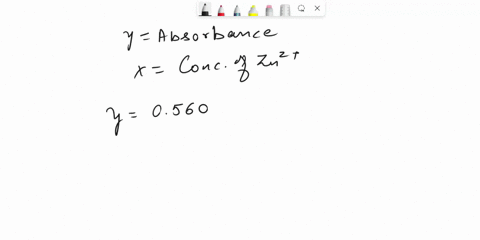 y = Absorbance
x = Conc. of Zn²⁺
y = 0.560